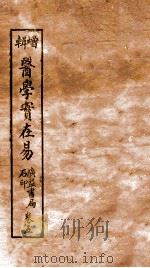 增輯
醫學實在易
廣益書局
石印
www.totobook.com